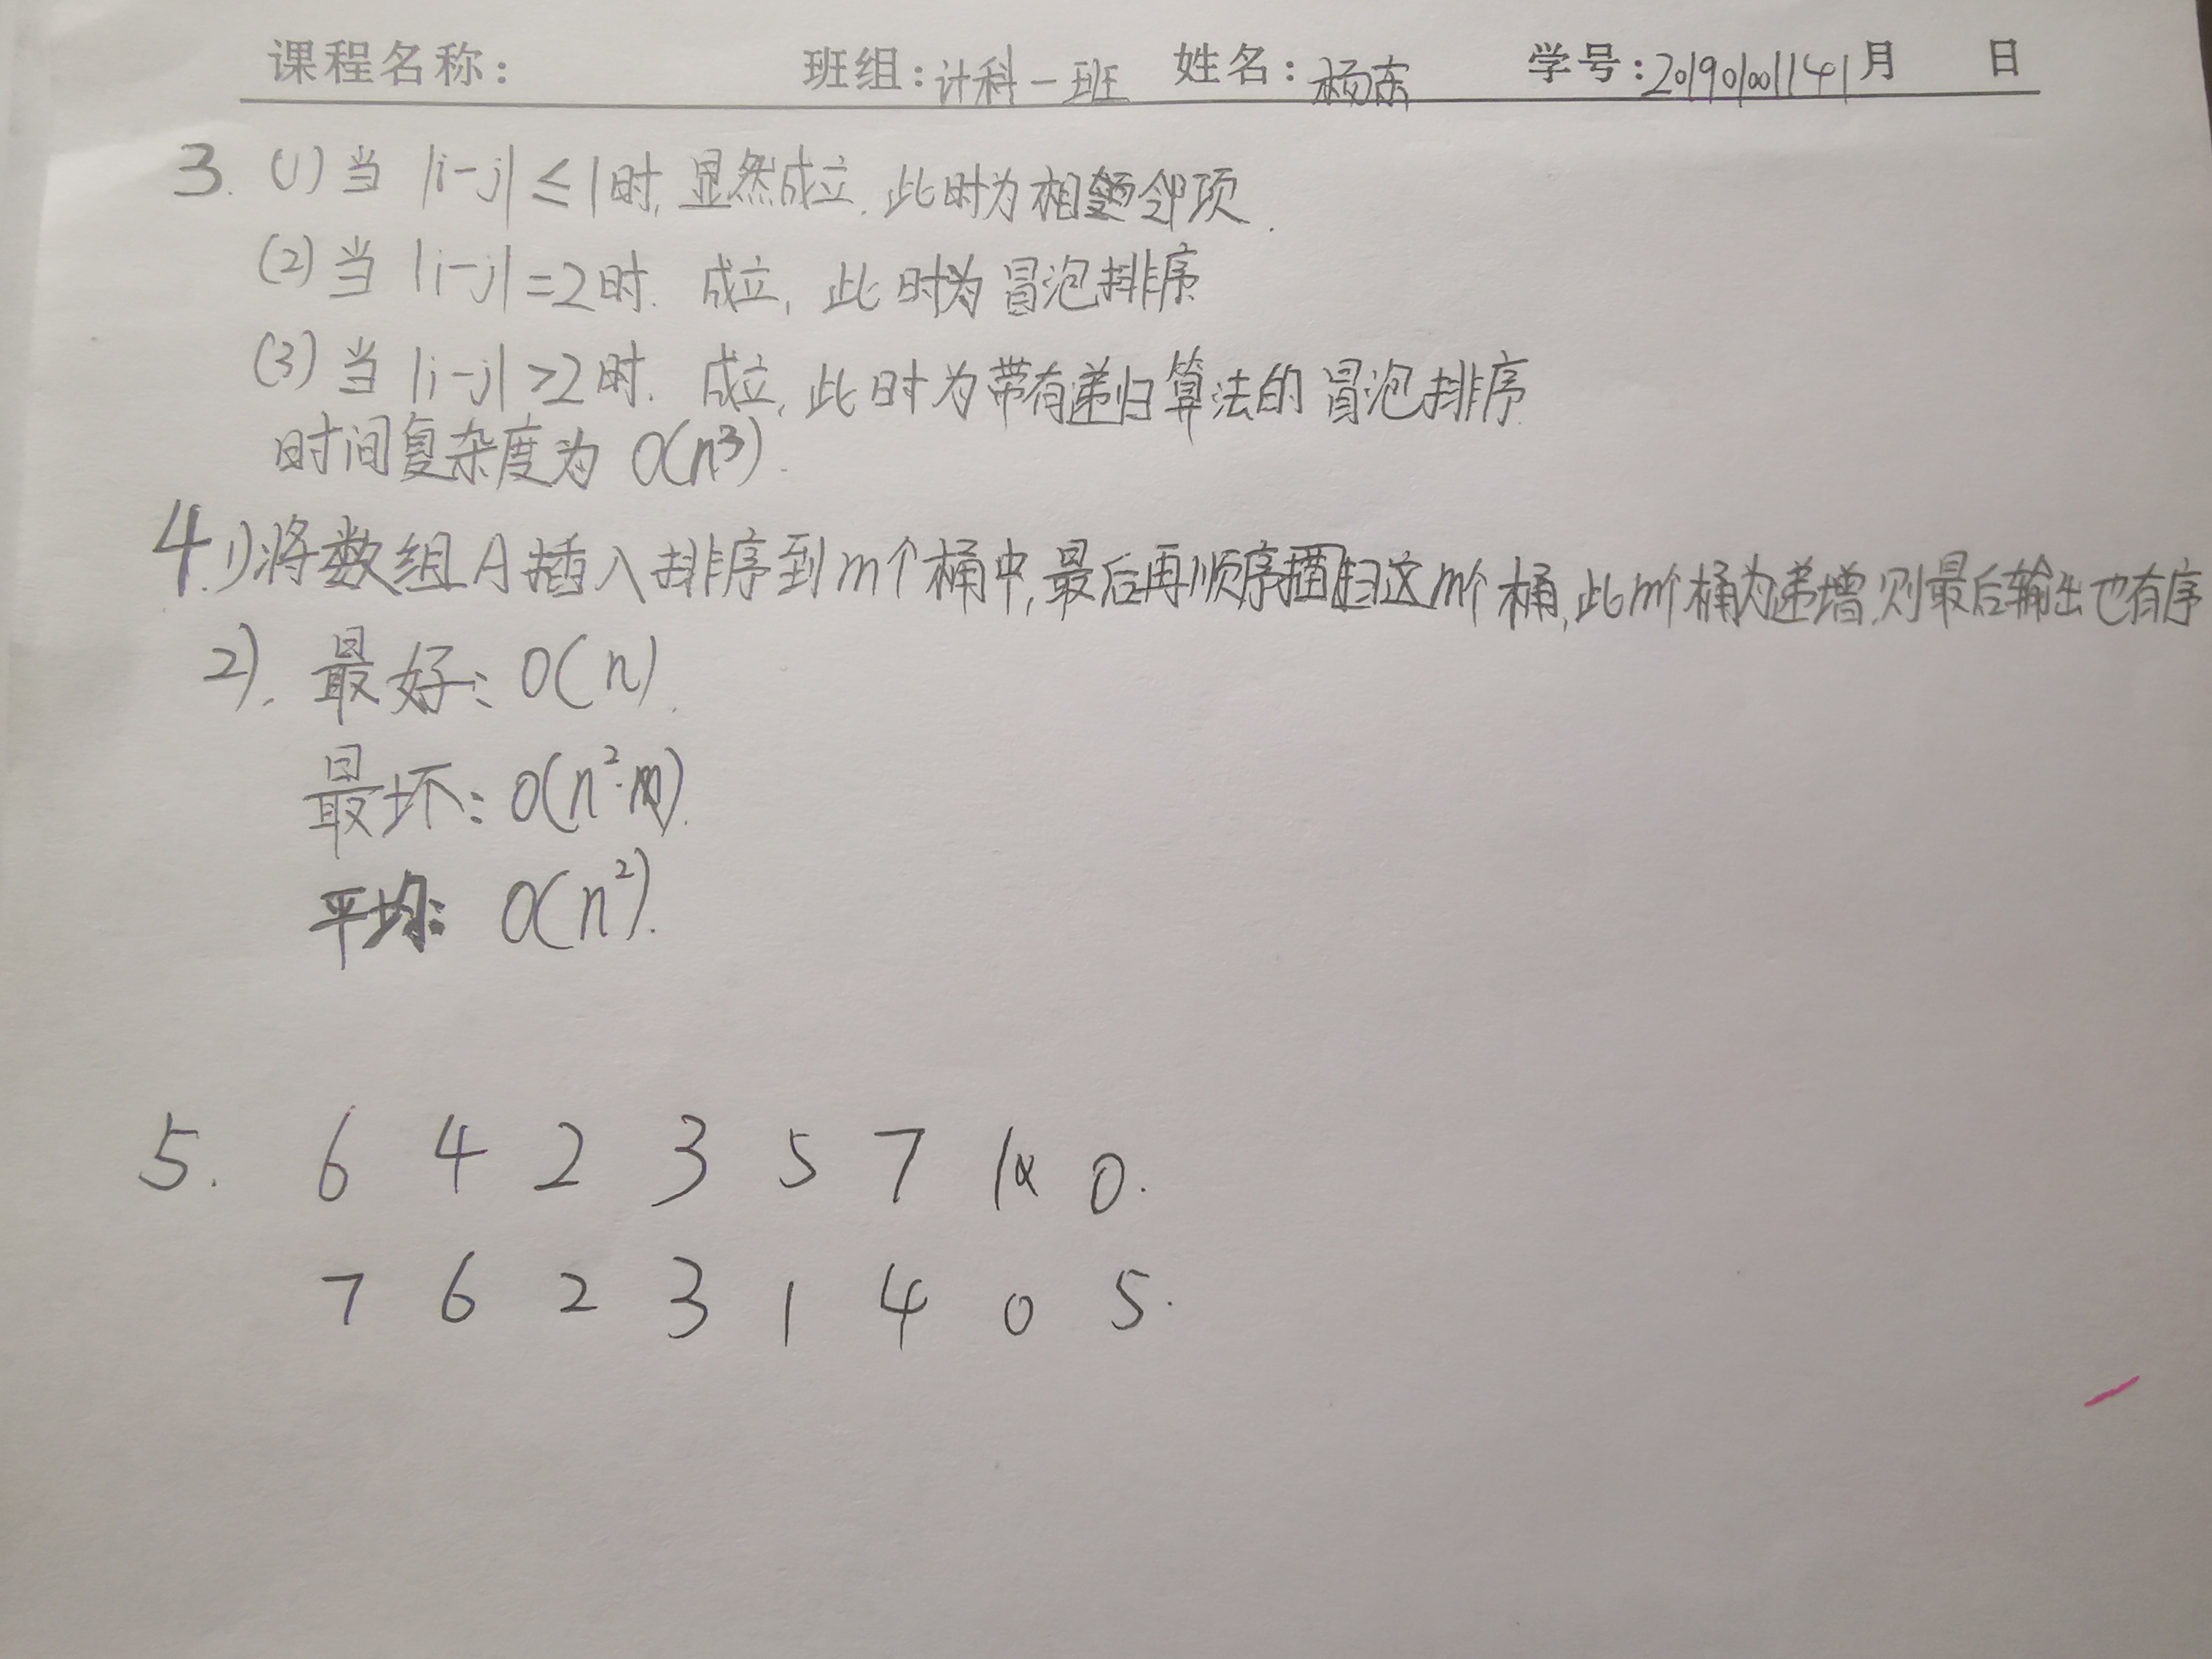 课程名称: 班组:计科一班 姓名:杨东 学号:201901001141月 日
3. (1)当 |i-j| ≤1时, 显然成立. 此时为相邻项.
(2)当 |i-j|=2时. 成立, 此时为冒泡排序
(3)当 |i-j|>2时. 成立, 此时为带有递归算法的冒泡排序.
时间复杂度为 O(n³).
4.1)将数组A插入排序到m个桶中,最后再顺序扫这m个桶,此m个桶为递增,则最后输出也有序
2). 最好: O(n).
最坏: O(n²·m).
平均: O(n²).
5. 6 4 2 3 5 7 1 0.
7 6 2 3 1 4 0 5.